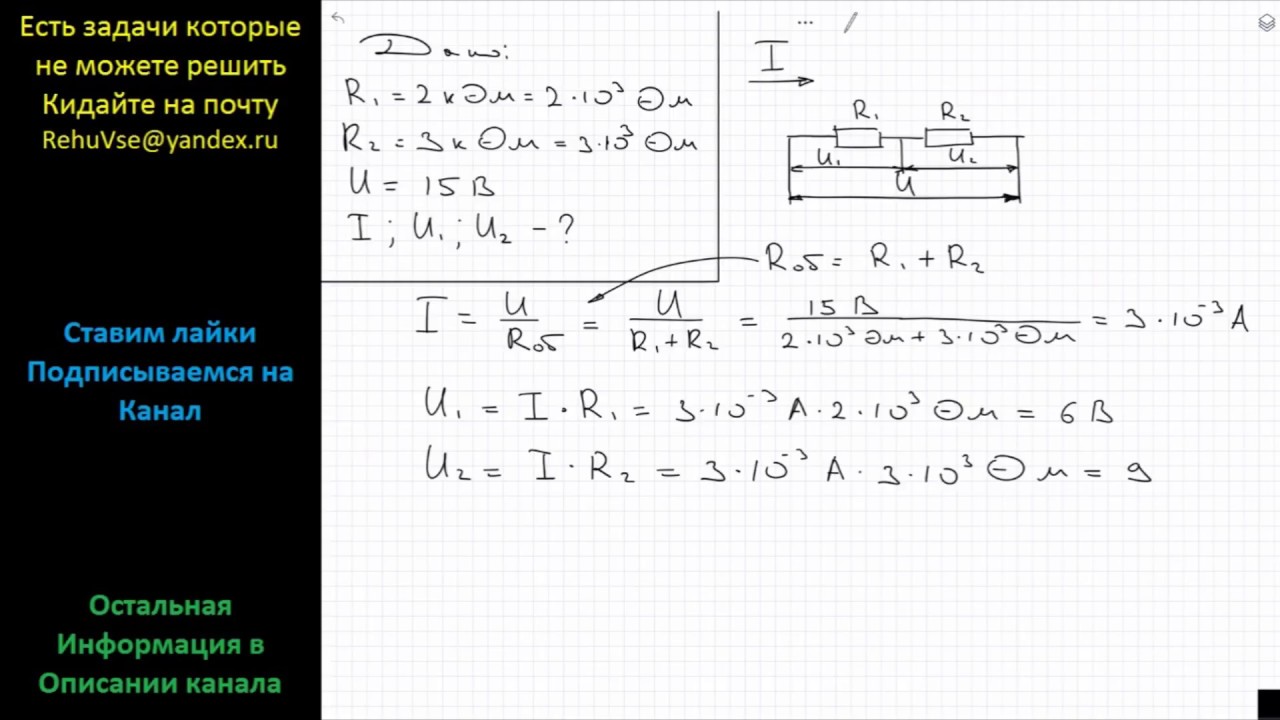 Есть задачи которые
не можете решить
Кидайте на почту
RehuVse@yandex.ru
Ставим лайки
Подписываемся на
Канал
Остальная
Информация в
Описании канала
Дано:
R₁ = 2 кОм = 2·10³ Ом
R₂ = 3 кОм = 3·10³ Ом
U = 15 В
I ; U₁ ; U₂ – ?
I
R₁ R₂
U₁ U₂
U
Rоб = R₁ + R₂
I = U/Rоб = U/(R₁+R₂) = 15 В/(2·10³ Ом + 3·10³ Ом) = 3·10⁻³ А
U₁ = I · R₁ = 3·10⁻³ А · 2·10³ Ом = 6 В
U₂ = I · R₂ = 3·10⁻³ А · 3·10³ Ом = 9